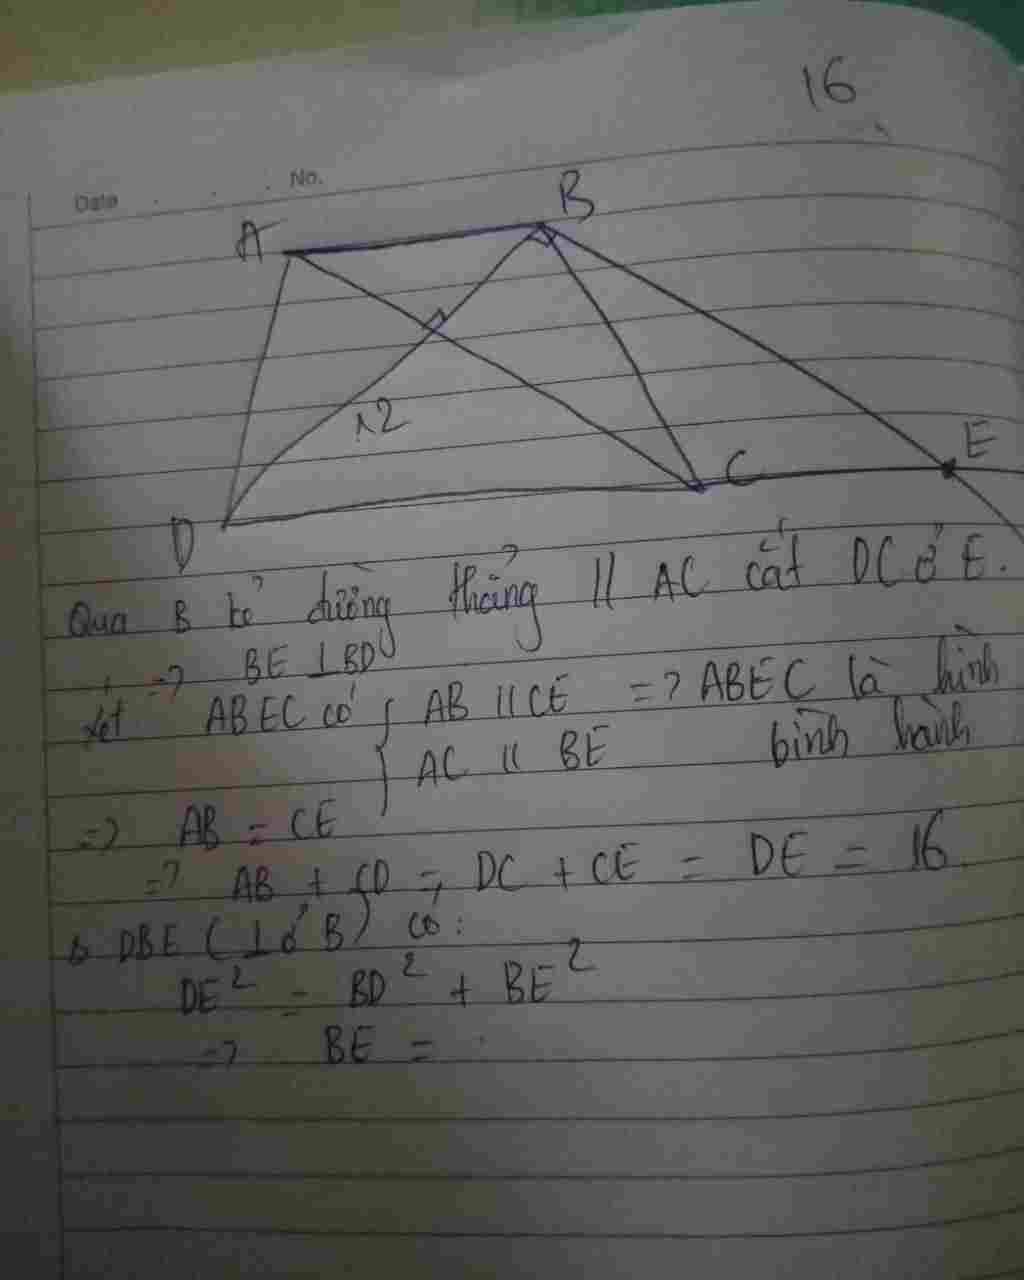 16
Date No.
A B
12
E
C
D
Qua B kẻ đường thẳng // AC cắt DC ở E.
=> BE ⊥ BD
Xét ABEC có { AB // CE => ABEC là hình
AC // BE bình hành
=> AB = CE
=> AB + CD = DC + CE = DE = 16
Δ DBE (⊥ ở B) có:
DE² = BD² + BE²
=> BE =